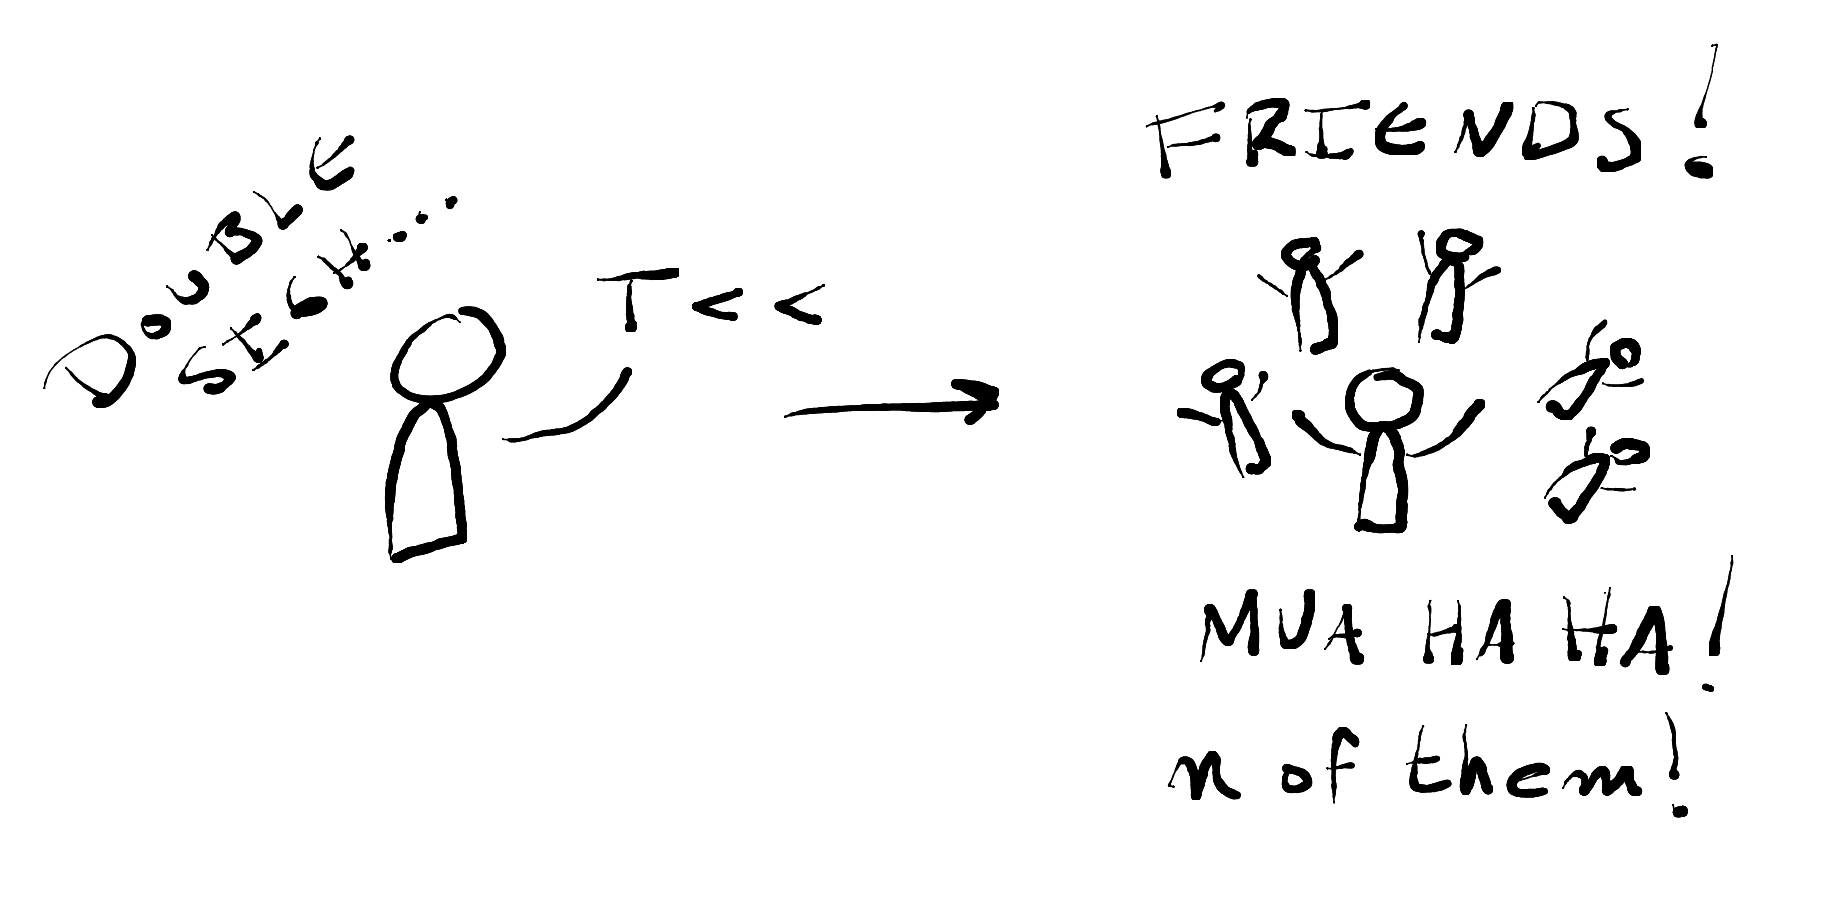 DOUBLE
SIGH....
T<<
FRIENDS!
MUA HA HA!
n of them!